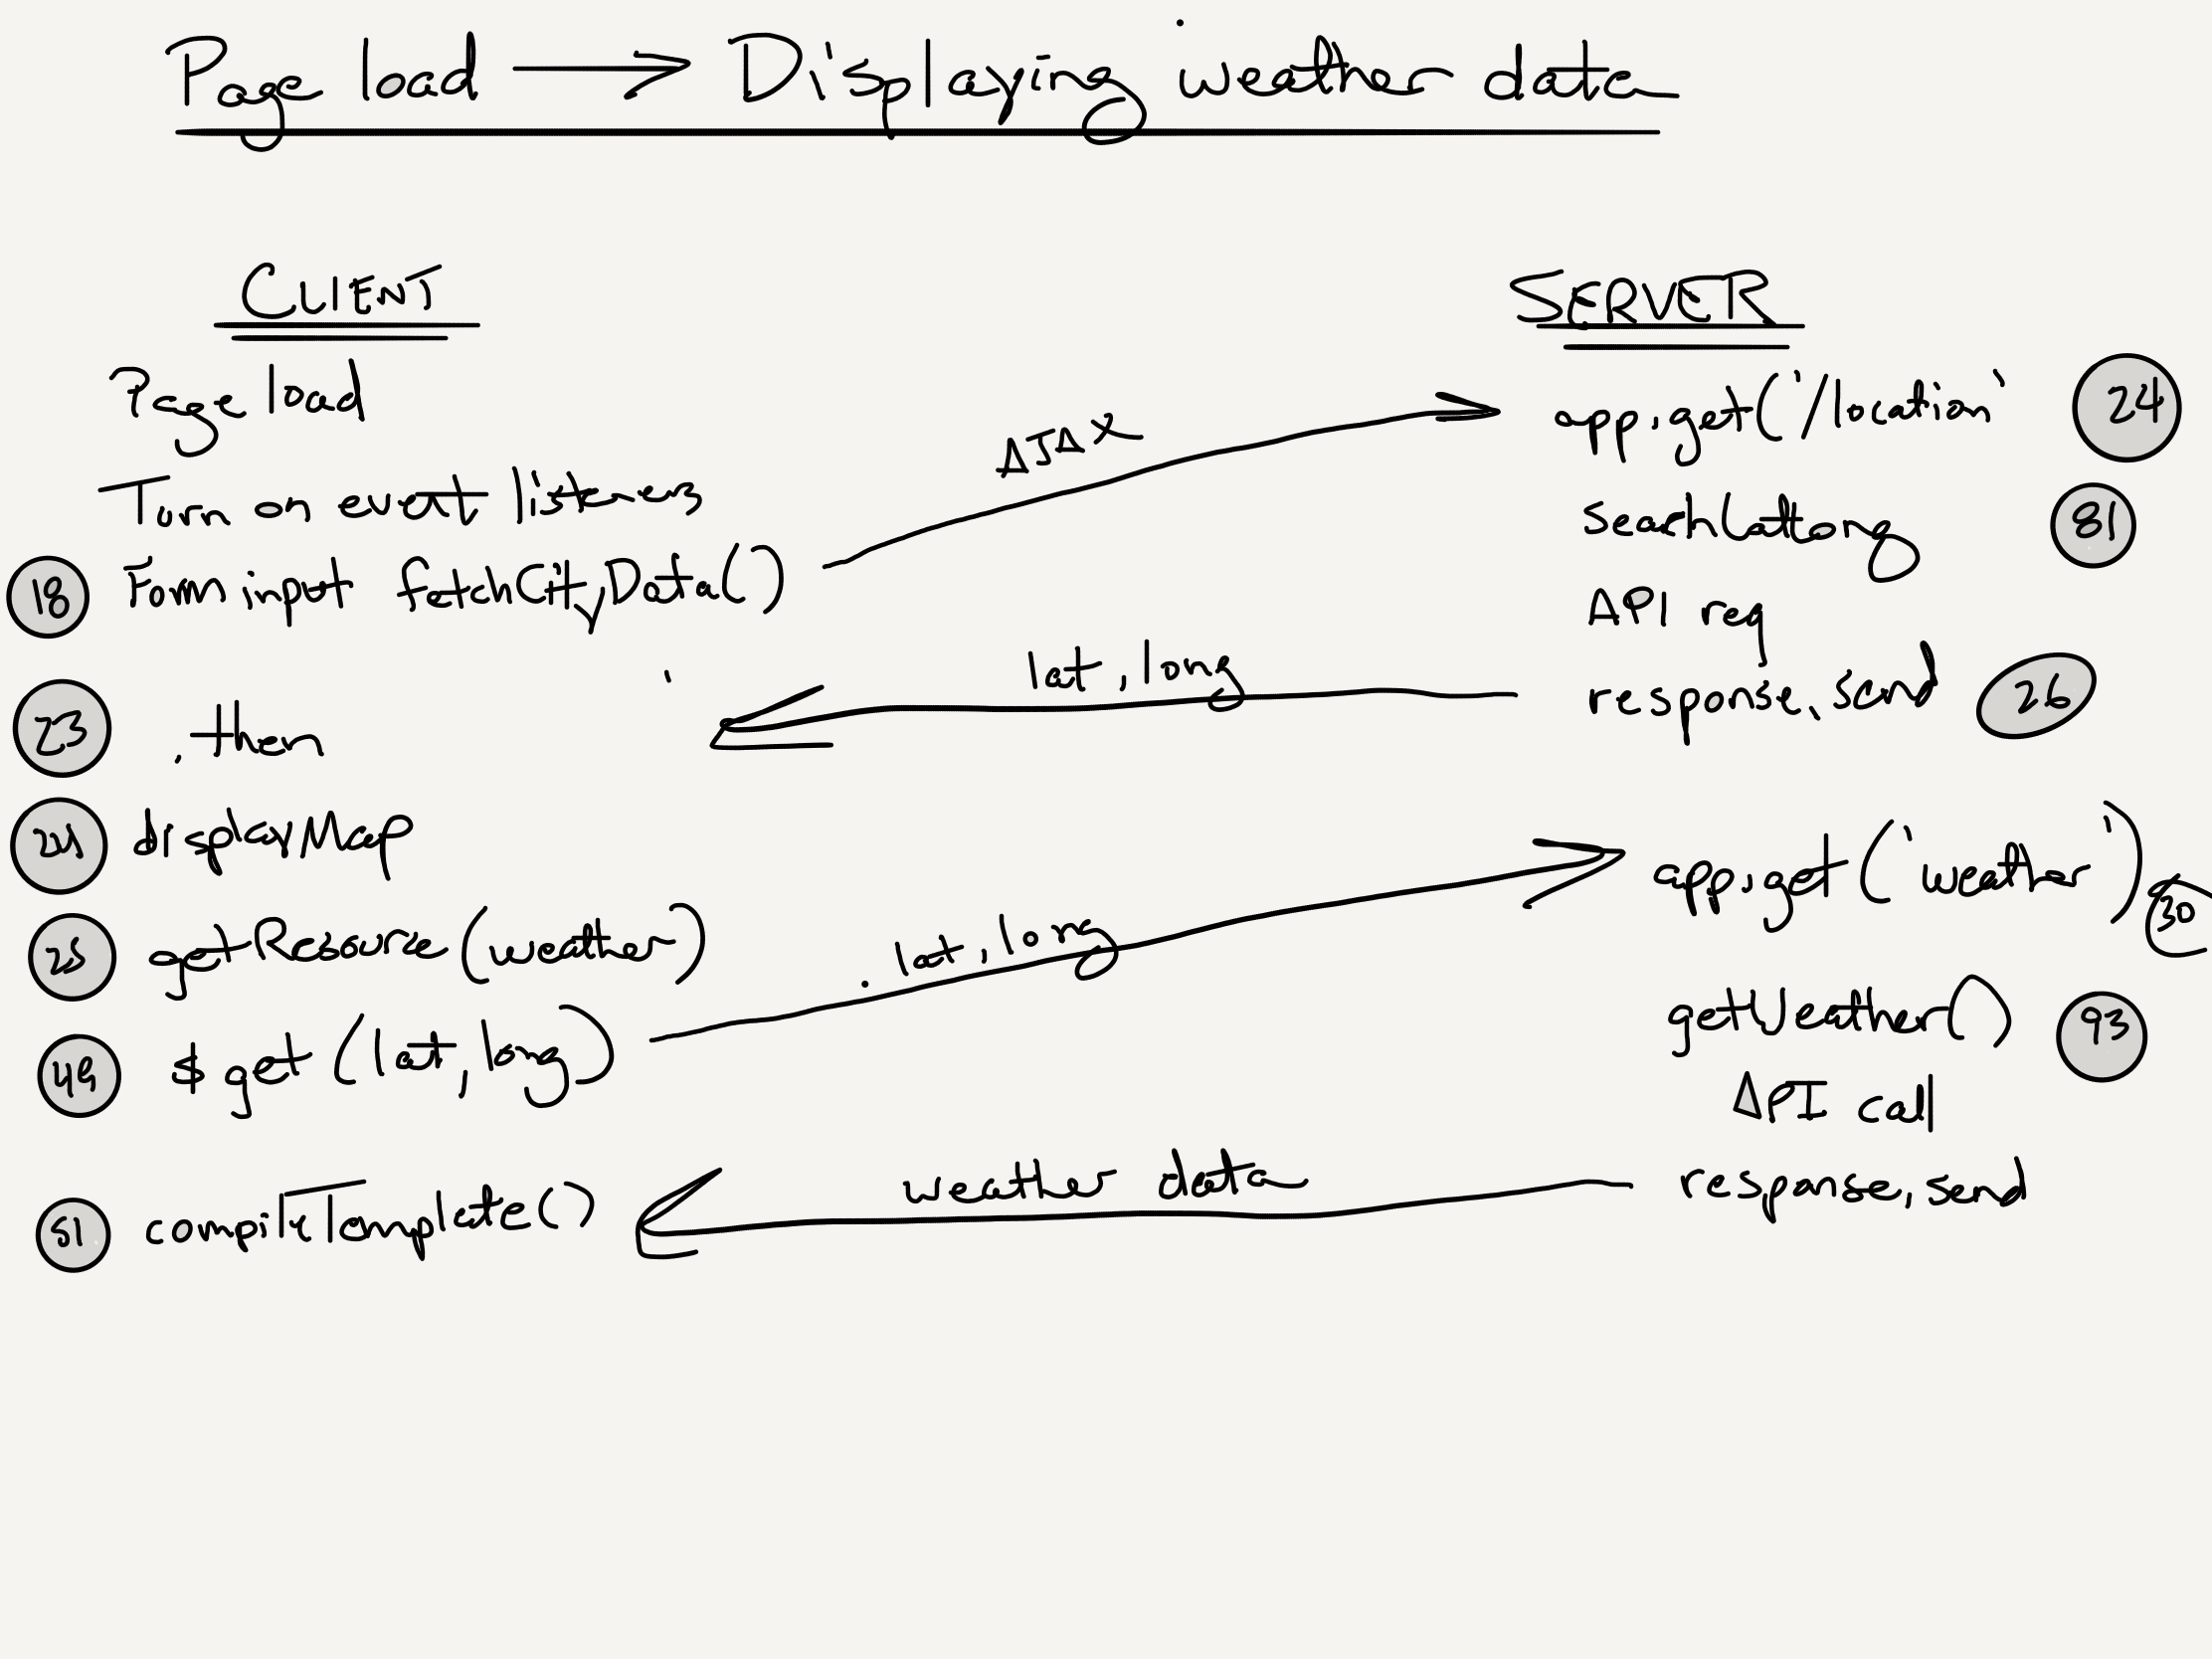 Page load → Displaying weather data
CLIENT
Page load
Turn on event listeners
18 Form input fetchCityData()
23 .then
24 displayMap
25 getResource(weather)
49 $get(lat, long)
51 compileTemplate()
AJAX
lat, long
. lat, long
weather data
SERVER
app.get('/location' 24
searchLatLong 81
API req
response.send 26
app.get('weather') 30
getWeather() 93
API call
response.send